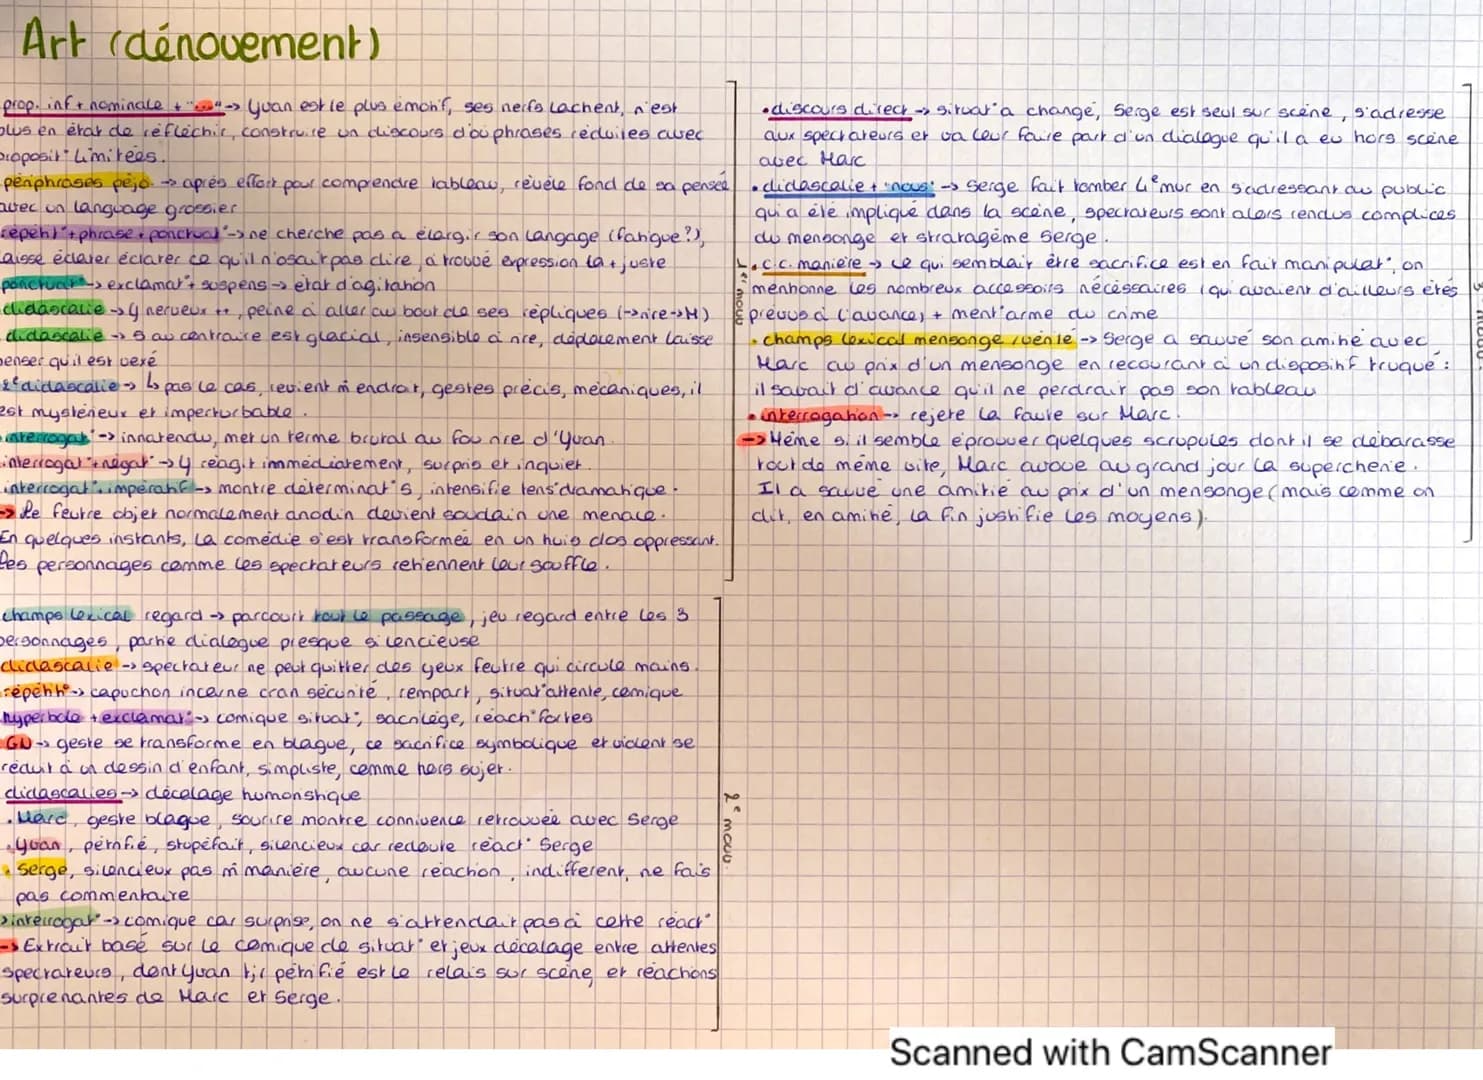 Art (dénouement)
prop. inf + nominale + "..." -> Yvan est le plus émotif, ses nerfs lachent, n'est
plus en état de réfléchir, construire un discours d'où phrases réduites avec
proposit° limitées.
périphrases péjo -> après effort pour comprendre tableau, révèle fond de sa pensée
avec un language grossier
répétit° + phrase + ponctuat° -> ne cherche pas à élargir son langage (fatigue?),
laisse éclater éclater ce qu'il n'osait pas dire, a trouvé expression la + juste
ponctuat° -> exclamat° + suspens -> état d'agitation
didascalie -> Y nerveux ++, peine à aller au bout de ses répliques (->rire->M)
didascalie -> S au contraire est glacial, insensible à rire, déplacement laisse
penser qu'il est vexé
2e didascalie -> pas le cas, revient m̂ endroit, gestes précis, mécaniques, il
est mystérieux et imperturbable.
interrogat° -> innatendu, met un terme brutal au fou rire d'Yvan.
interrogat° + négat° -> Y réagit immédiatement, surpris et inquiet.
interrogat°, impératif -> montre déterminat° S, intensifie tens° dramatique.
-> Le feutre objet normalement anodin devient soudain une menace.
En quelques instants, la comédie s'est transformée en un huis clos oppressant.
Les personnages comme les spectateurs retiennent leur souffle.
1er mouv
champs lexical regard -> parcourt tout le passage, jeu regard entre les 3
personnages, partie dialogue presque silencieuse
didascalie -> spectateur ne peut quitter des yeux feutre qui circule mains.
répétit° -> capuchon incarne cran sécurité, rempart, situat° attente, comique
hyperbole + exclamat° -> comique situat°, sacrilège, réact° fortes
GN -> geste se transforme en blague, ce sacrifice symbolique et violent se
réduit à un dessin d'enfant, simpliste, comme hors sujet.
didascalies -> décalage humoristique
. Marc, geste blague, sourire montre connivence retrouvée avec Serge
. Yvan, pétrifié, stupéfait, silencieux car redoute réact° Serge
. Serge, silencieux pas m̂ manière, aucune réaction, indifférent, ne fais
pas commentaire
interrogat° -> comique car surprise, on ne s'attendait pas à cette réact°
-> Extrait basé sur le comique de situat° et jeux décalage entre attentes
spectateurs, dont Yvan tjr pétrifié est le relais sur scène, et réactions
surprenantes de Marc et Serge.
2e mouv.
• discours direct -> situat° a changé, Serge est seul sur scène, s'adresse
aux spectateurs et va leur faire part d'un dialogue qu'il a eu hors scène
avec Marc
• didascalie + "nous" -> Serge fait tomber 4e mur en s'adressant au public
qui a été impliqué dans la scène, spectateurs sont alors rendus complices
du mensonge et stratagème Serge.
• c.c. manière -> ce qui semblait être sacrifice est en fait manipulat°, on
mentionne les nombreux accessoirs nécéssaires (qui avaient d'ailleurs étés
prévus à l'avance) + ment° arme du crime
• champs lexical mensonge/vérité -> Serge a sauvé son amitié avec
Marc au prix d'un mensonge en recourant à un dispositif truqué :
il savait d'avance qu'il ne perdrait pas son tableau
• interrogation -> rejete la faute sur Marc.
-> Même si il semble éprouver quelques scrupules dont il se débarasse
tout de même vite, Marc avoue au grand jour la supercherie.
Il a sauvé une amitié au prix d'un mensonge (mais comme on
dit, en amitié, la fin justifie les moyens).
Scanned with CamScanner